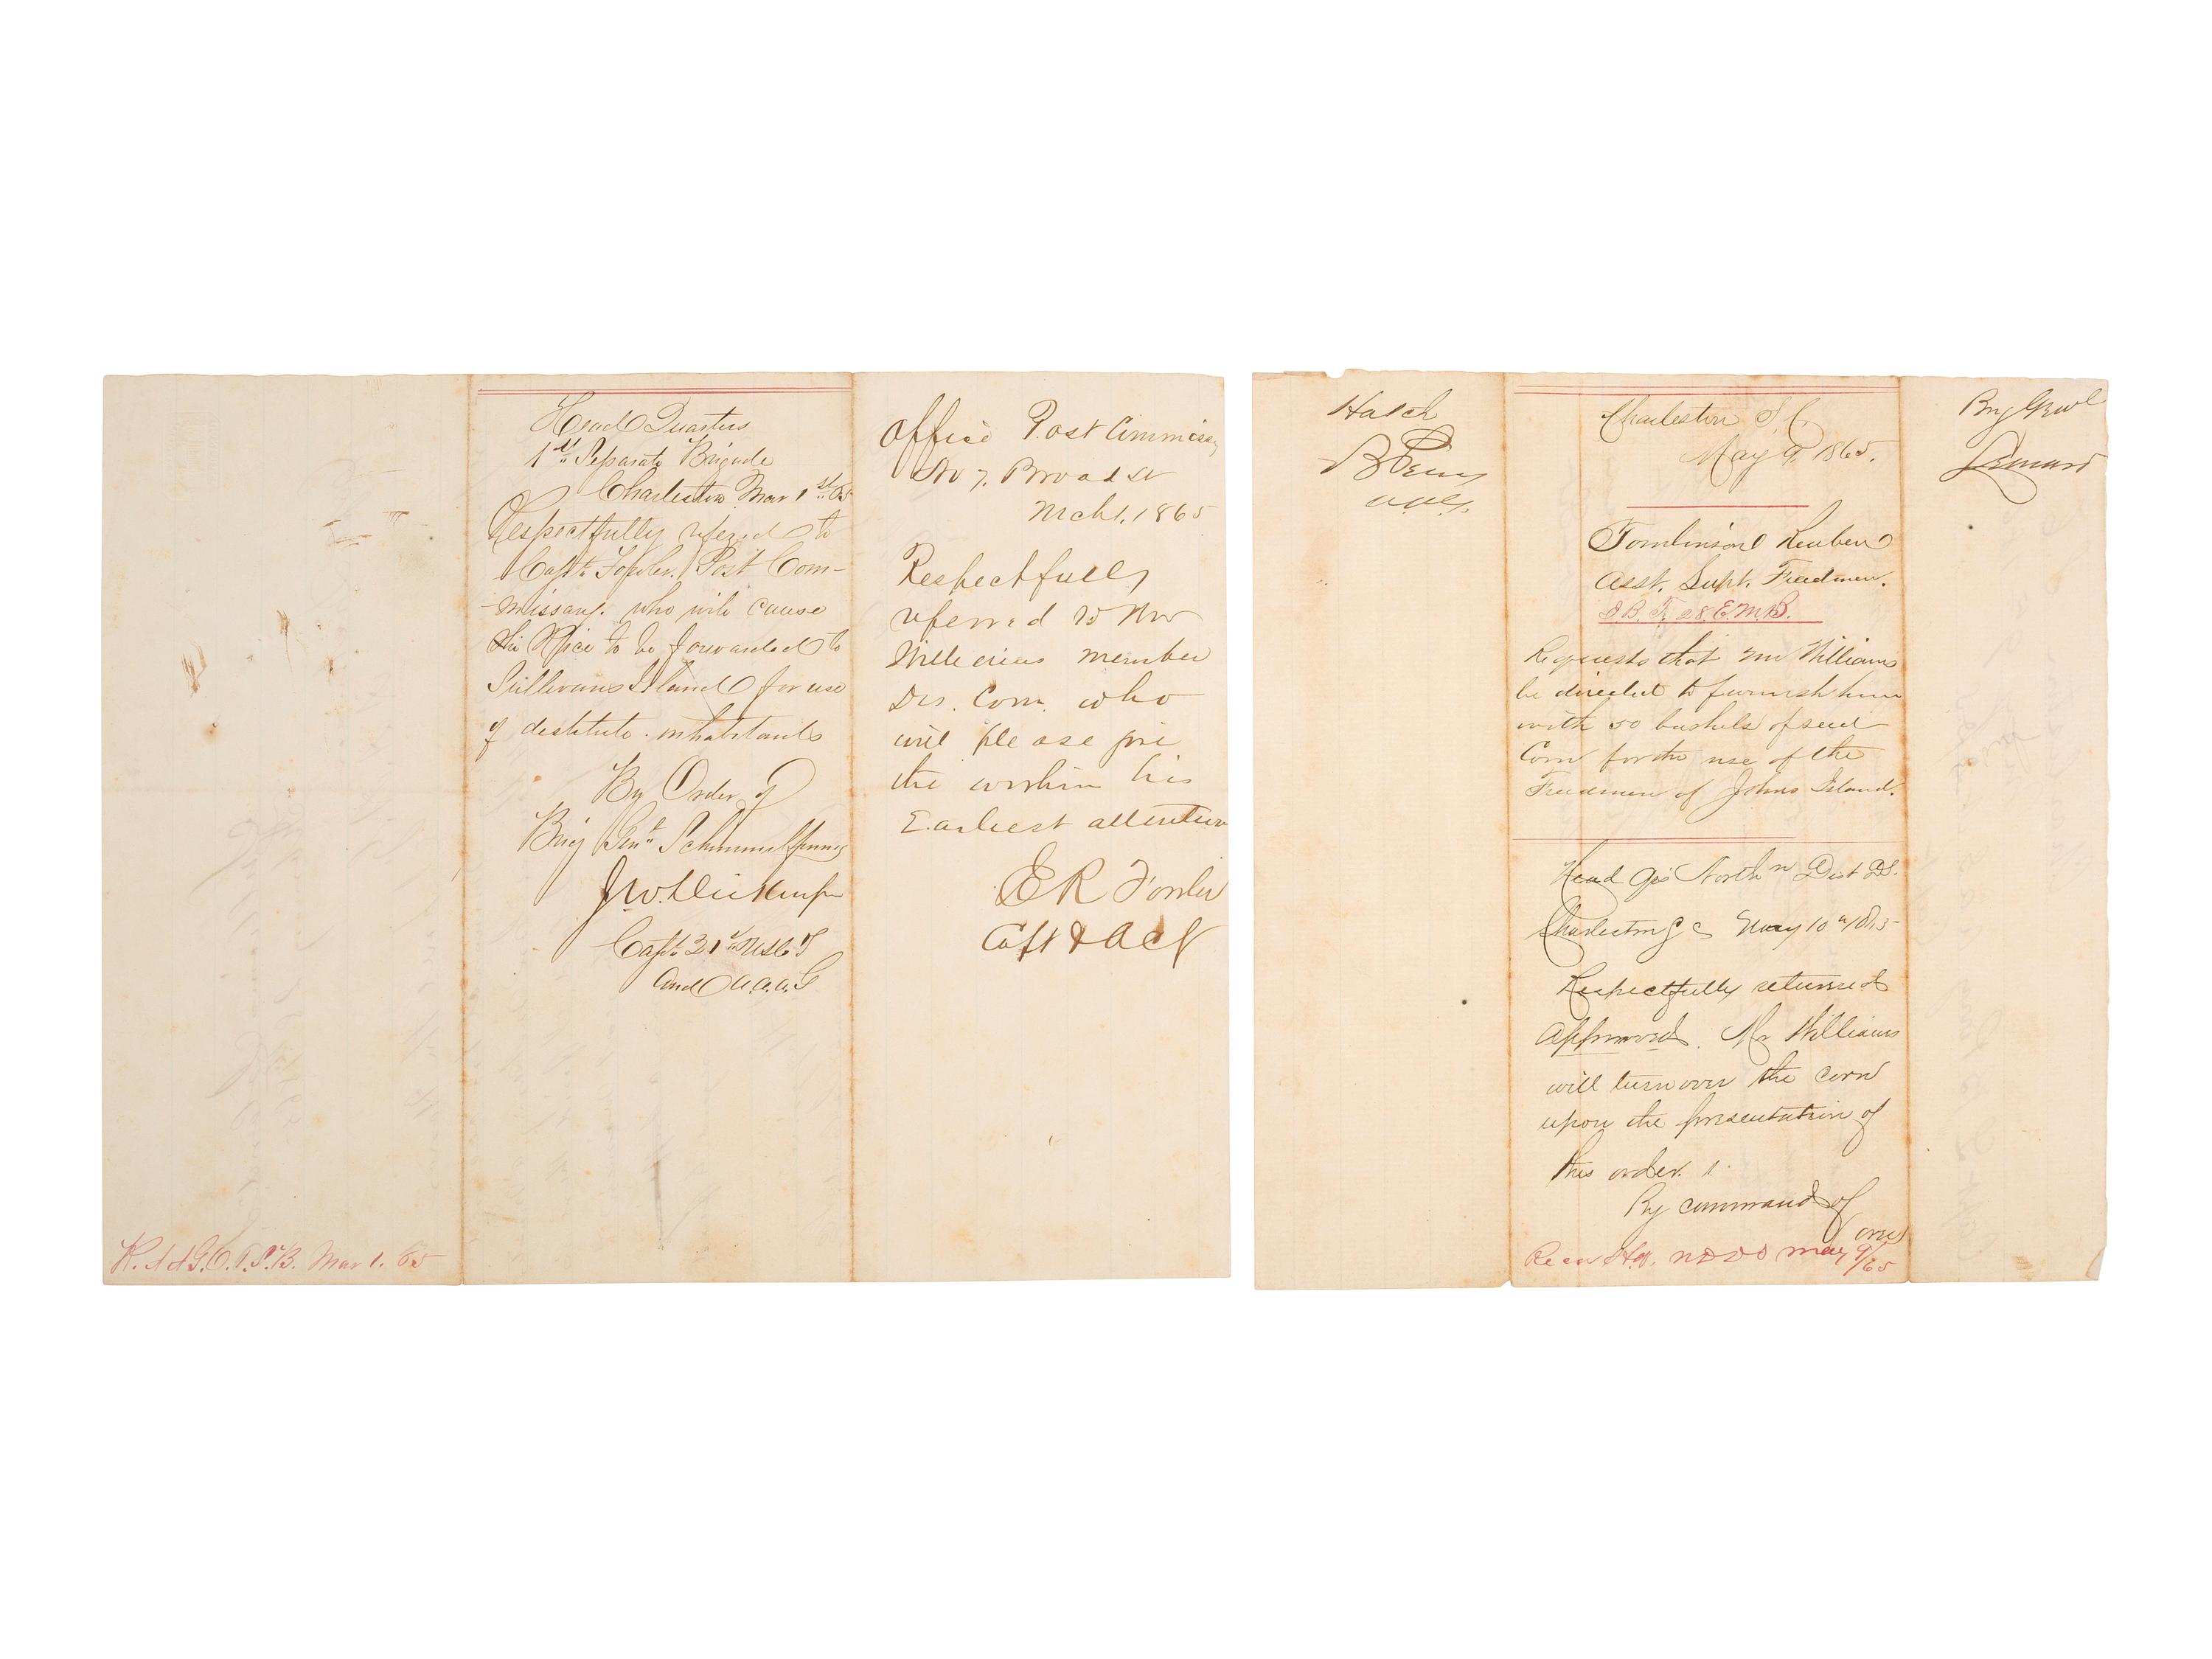 Head Quarters
1st Separate Brigade
Charleston Mar 1st 65
Respectfully refered to
Capt. Fowler Post Com-
missary. who will cause
the Rice to be forwarded to
Sullivans Island for use
of destitute inhabitants
By Order of
Brig Genl Schimmelfennig
J.W. Dickinson
Capt. 21st U.S.C.T
and A.A.A.G
Mar 1. 65
Office Post Commissy
No 7. Broad St
Mch 1. 1865
Respectfully
referred to Mr
Williams member
Dis. Com. who
will please give
the within his
Earliest attention
E R Fowler
Capt & ACS
Hatch
Charleston S.C.
May 9, 1865.
Tomlinson Reuben
Asst. Supt. Freedmen.
28. E.M.B.
Requests that Mr Williams
be directed to furnish him
with 50 bushels of seed
Corn for the use of the
Freedmen of Johns Island.
Head Qrs Northn Dist D.S.
Charleston S C May 10th 1865
Respectfully returned
Approved. Mr Williams
will turn over the corn
upon the presentation of
this order.
By command of
over
Recd H.Q. N D D S May 9/65
Brig Genl